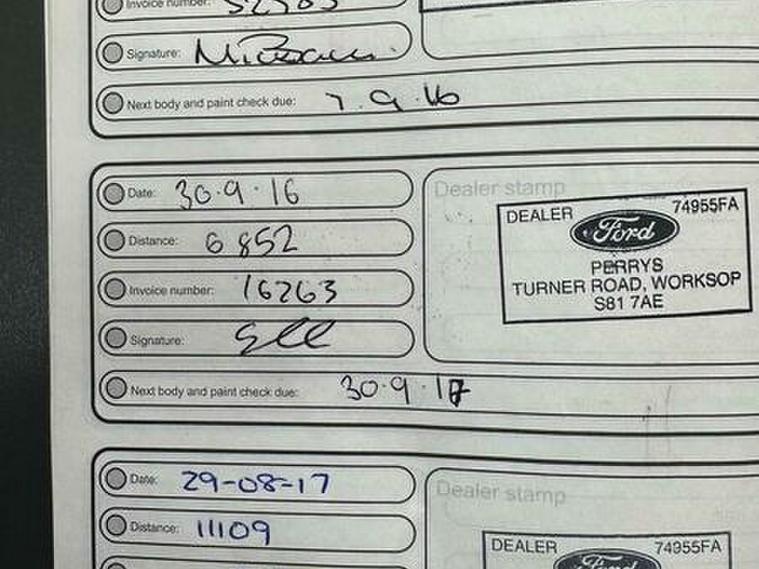 Invoice number:
Signature:
Next body and paint check due: 7.9.16
Date: 30.9.16
Distance: 6852
Invoice number: 16263
Signature:
Next body and paint check due: 30.9.17
Dealer stamp
DEALER 74955FA
Ford
PERRYS
TURNER ROAD, WORKSOP
S81 7AE
Date: 29-08-17
Distance: 11109
Dealer stamp
DEALER 74955FA
Ford